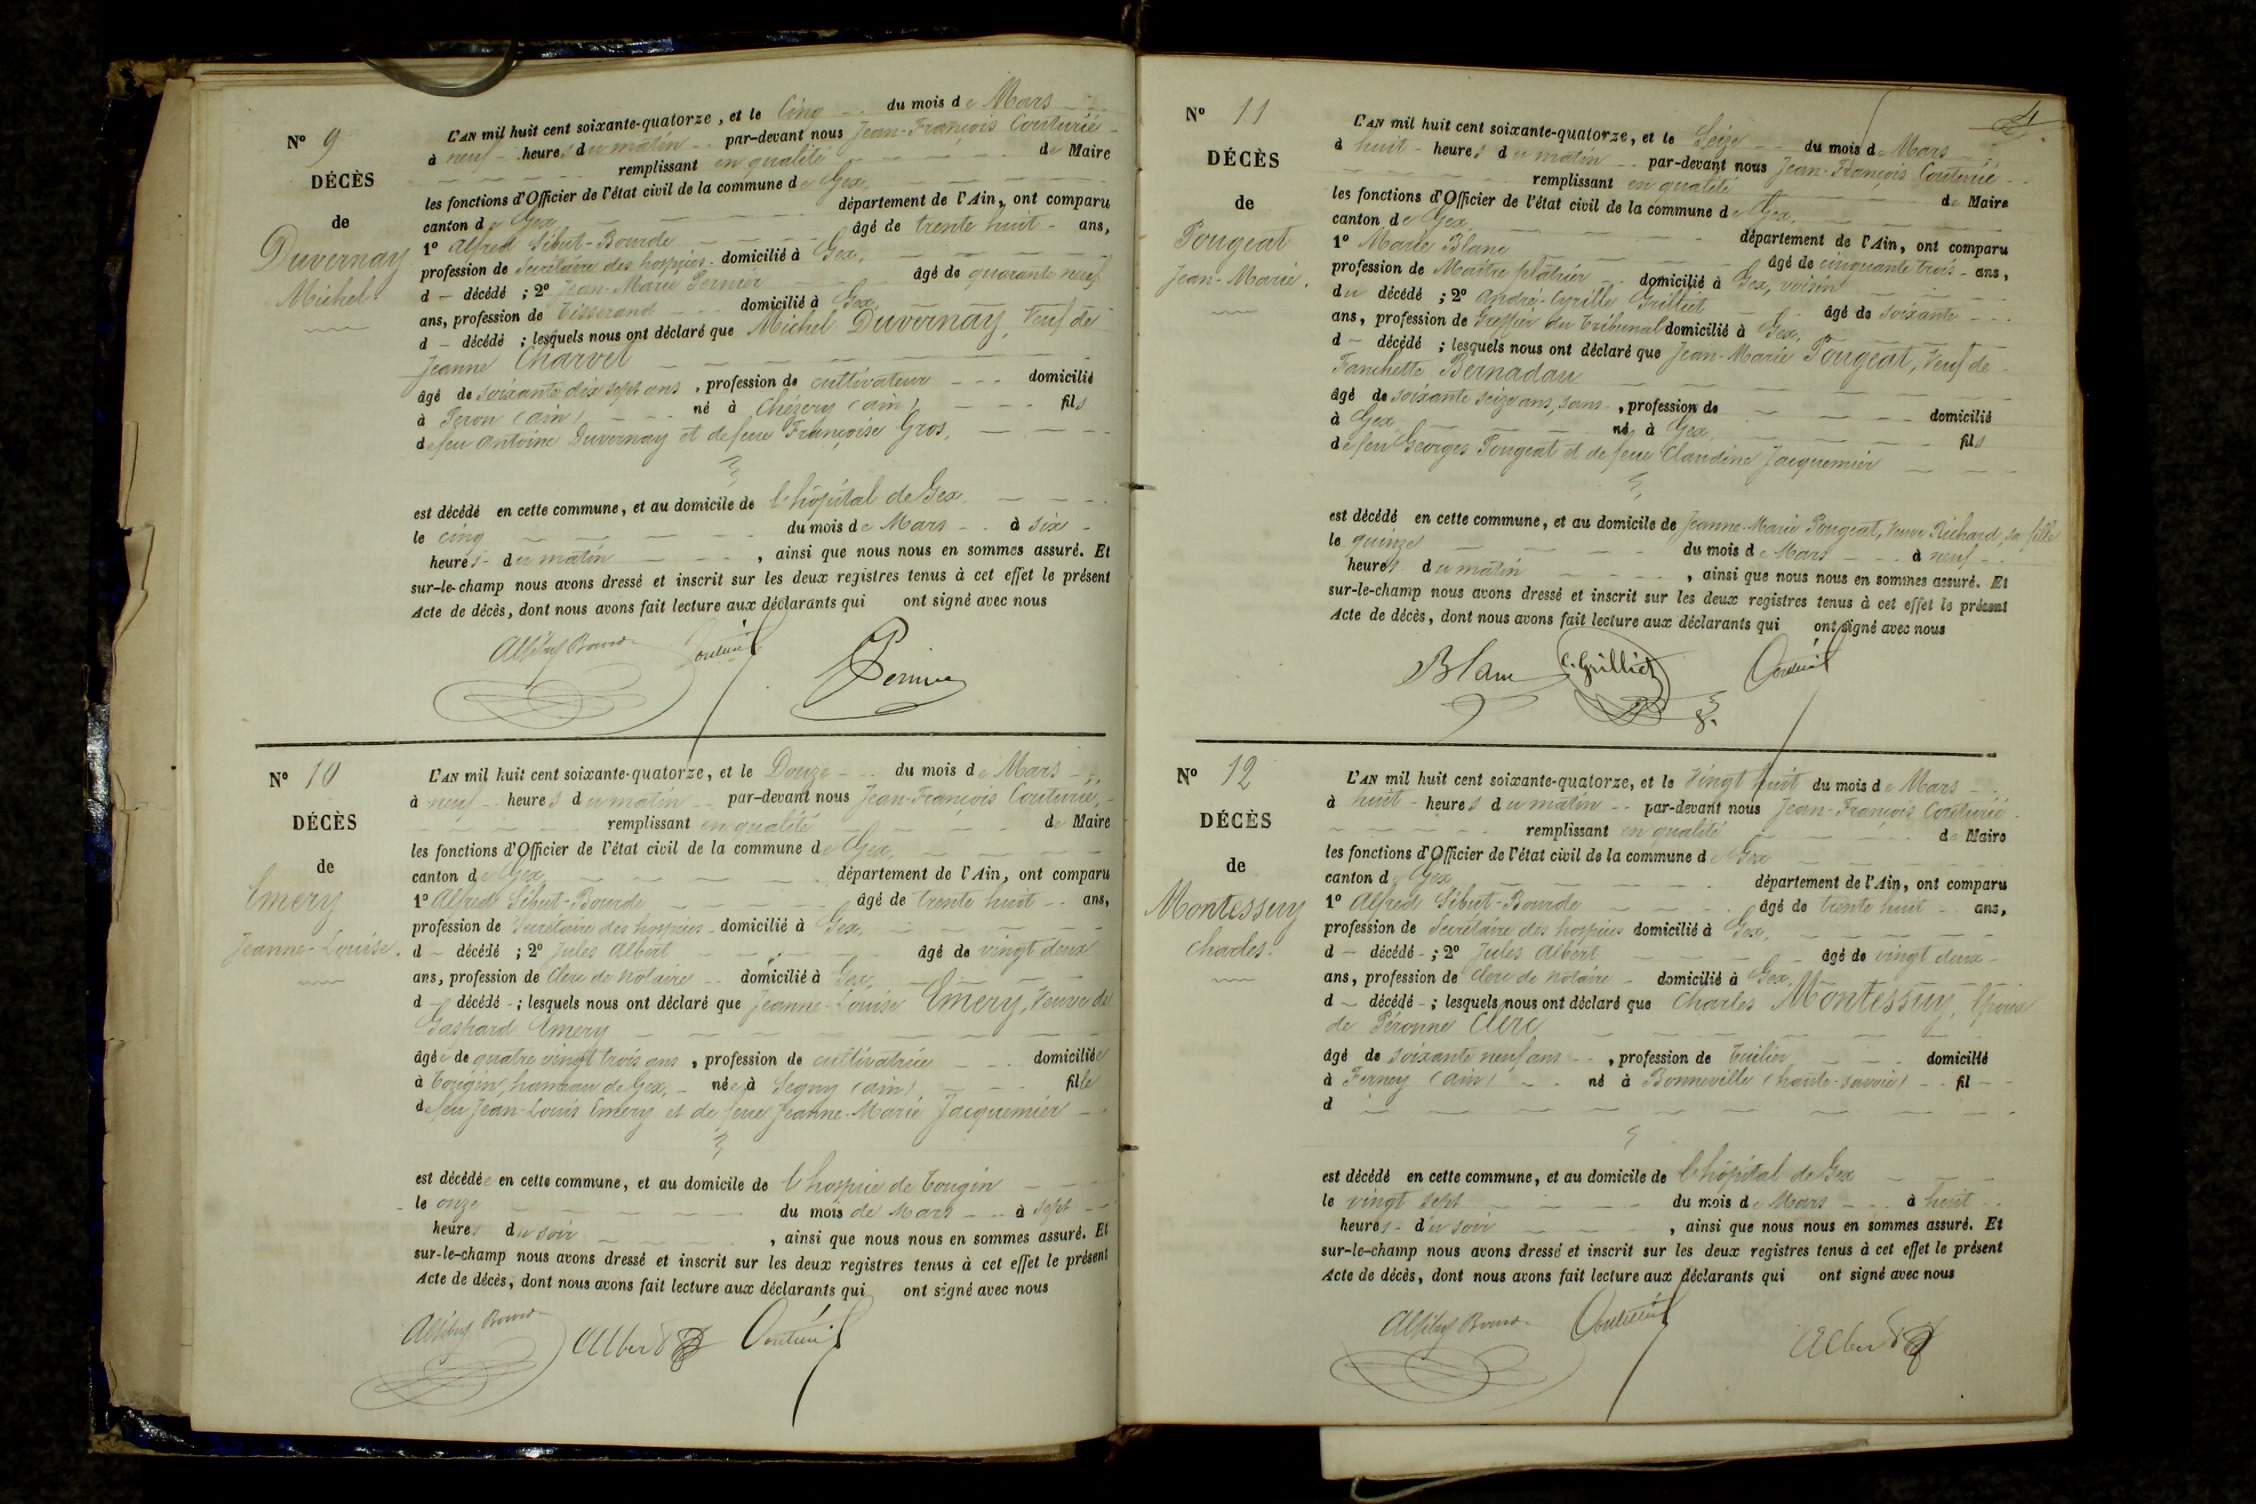 N° 9
DÉCÈS
de
Duvernay
Michel.
L'AN mil huit cent soixante-quatorze, et le Cinq du mois de Mars
à neuf heures du matin par-devant nous Jean-François Couturié
remplissant en qualité de Maire
les fonctions d'Officier de l'état civil de la commune de Gex,
canton de Gex département de l'Ain, ont comparu
1° Alfred Sibut-Bourde âgé de trente huit ans,
profession de Secrétaire des hospices domicilié à Gex,
d décédé ; 2° Jean-Marie Pernier âgé de quarante neuf
ans, profession de Tisserand domicilié à Gex,
d décédé ; lesquels nous ont déclaré que Michel Duvernay, Veuf de
Jeanne Charvet
âgé de soixante dix sept ans, profession de cultivateur domicilié
à Péron (ain) né à Chézery (ain) fils
de feu Antoine Duvernay et de feue Françoise Gros,
est décédé en cette commune, et au domicile de l'hôpital de Gex
le cinq du mois de Mars à six
heures du matin, ainsi que nous nous en sommes assuré. Et
sur-le-champ nous avons dressé et inscrit sur les deux registres tenus à cet effet le présent
Acte de décès, dont nous avons fait lecture aux déclarants qui ont signé avec nous
N° 10
DÉCÈS
de
Emery
Jeanne-Louise.
L'AN mil huit cent soixante-quatorze, et le Douze du mois de Mars
à neuf heures du matin par-devant nous Jean-François Couturié,
remplissant en qualité de Maire
les fonctions d'Officier de l'état civil de la commune de Gex,
canton de Gex département de l'Ain, ont comparu
1° Alfred Sibut-Bourde âgé de trente huit ans,
profession de Secrétaire des hospices domicilié à Gex,
d décédé ; 2° Jules Albert âgé de vingt deux
ans, profession de Clerc de Notaire domicilié à Gex,
d décédé ; lesquels nous ont déclaré que Jeanne-Louise Emery, Veuve de
Gaspard Emery
âgée de quatre vingt trois ans, profession de cultivatrice domiciliée
à Tougin, hameau de Gex, née à Segny (ain) fille
de feu Jean-Louis Emery et de feue Jeanne-Marie Jacquemier
est décédée en cette commune, et au domicile de l'hospice de Tougin
le onze du mois de Mars à sept
heures du soir, ainsi que nous nous en sommes assuré. Et
sur-le-champ nous avons dressé et inscrit sur les deux registres tenus à cet effet le présent
Acte de décès, dont nous avons fait lecture aux déclarants qui ont signé avec nous
Albert Couturié
4
N° 11
DÉCÈS
de
Pougeat
Jean-Marie.
L'AN mil huit cent soixante-quatorze, et le Seize du mois de Mars
à huit heures du matin par-devant nous Jean-François Couturié
remplissant en qualité de Maire
les fonctions d'Officier de l'état civil de la commune de Gex,
canton de Gex, département de l'Ain, ont comparu
1° Marie Blanc âgé de cinquante trois ans,
profession de Maître plâtrier domicilié à Gex, voisin
du décédé ; 2° André-Cyrille Grilliet âgé de soixante
ans, profession de Greffier du Tribunal domicilié à Gex,
d décédé ; lesquels nous ont déclaré que Jean-Marie Pougeat, Veuf de
Fanchette Bernadau
âgé de soixante seize ans, sans, profession de domicilié
à Gex né à Gex, fils
de feu Georges Pougeat et de feue Claudine Jacquemier
est décédé en cette commune, et au domicile de Jeanne-Marie Pougeat, Veuve Richard, sa fille
le quinze du mois de Mars à neuf
heures du matin, ainsi que nous nous en sommes assuré. Et
sur-le-champ nous avons dressé et inscrit sur les deux registres tenus à cet effet le présent
Acte de décès, dont nous avons fait lecture aux déclarants qui ont signé avec nous
Blanc C. Grilliet Couturié
N° 12
DÉCÈS
de
Montessuy
Charles.
L'AN mil huit cent soixante-quatorze, et le Vingt huit du mois de Mars
à huit heures du matin par-devant nous Jean-François Couturié
remplissant en qualité de Maire
les fonctions d'Officier de l'état civil de la commune de Gex
canton de Gex département de l'Ain, ont comparu
1° Alfred Sibut-Bourde âgé de trente huit ans,
profession de Secrétaire des hospices domicilié à Gex,
d décédé ; 2° Jules Albert âgé de vingt deux
ans, profession de Clerc de Notaire domicilié à Gex,
d décédé ; lesquels nous ont déclaré que Charles Montessuy, Epoux
de Péronne Clerc
âgé de soixante neuf ans, profession de Tuilier domicilié
à Ferney (ain) né à Bonneville (haute-savoie) fil
d
est décédé en cette commune, et au domicile de l'hôpital de Gex
le vingt sept du mois de Mars à huit
heures du soir, ainsi que nous nous en sommes assuré. Et
sur-le-champ nous avons dressé et inscrit sur les deux registres tenus à cet effet le présent
Acte de décès, dont nous avons fait lecture aux déclarants qui ont signé avec nous
Couturié Albert